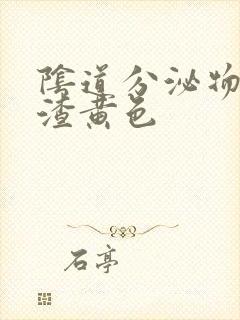 陰道分泌物
渣黄色
石亭